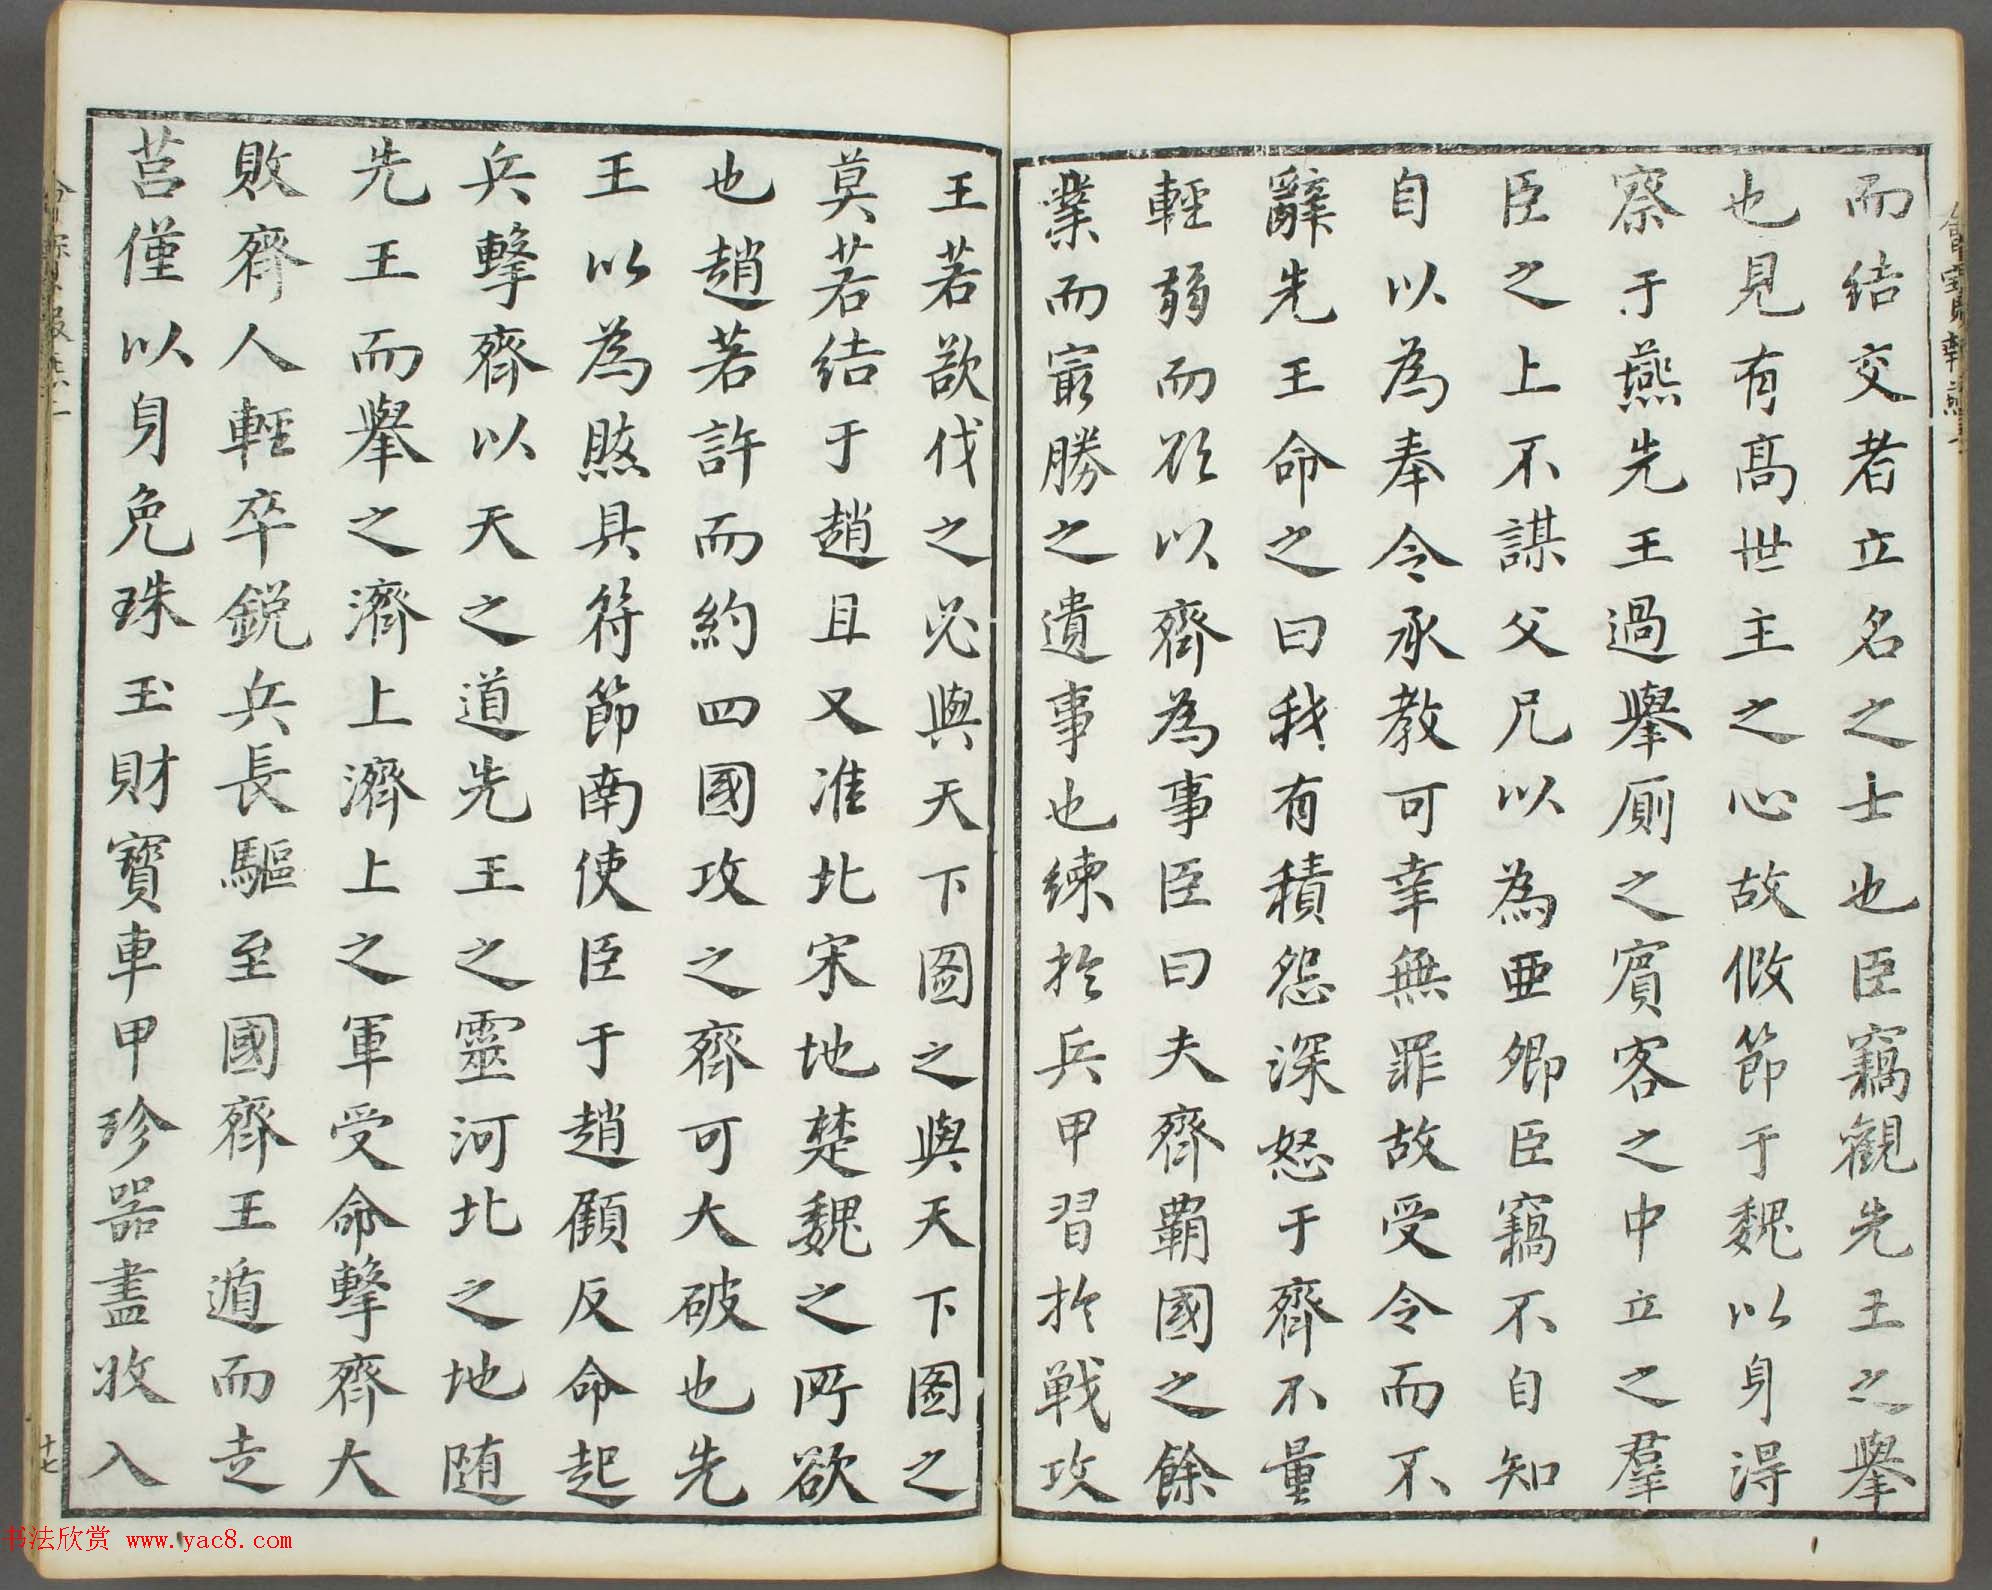 而結交者立名之士也臣竊觀先王之舉
也見有高世主之心故假節于魏以身得
察于燕先王過舉厠之賓客之中立之羣
臣之上不謀父兄以為亜卿臣竊不自知
自以為奉令承教可幸無罪故受令而不
辭先王命之曰我有積怨深怒于齊不量
輕弱而欲以齊為事臣曰夫齊覇國之餘
業而寂勝之遺事也練扵兵甲習扵戰攻
王若欲伐之必與天下圖之與天下圖之
莫若結于趙且又淮北宋地楚魏之所欲
也趙若許而約四國攻之齊可大破也先
王以為然具符節南使臣于趙顧反命起
兵擊齊以天之道先王之靈河北之地随
先王而舉之濟上濟上之軍受命擊齊大
敗齊人輕卒鋭兵長驅至國齊王遁而走
莒僅以身免珠玉財寳車甲珍器盡收入
十七
书法欣赏 www.yac8.com